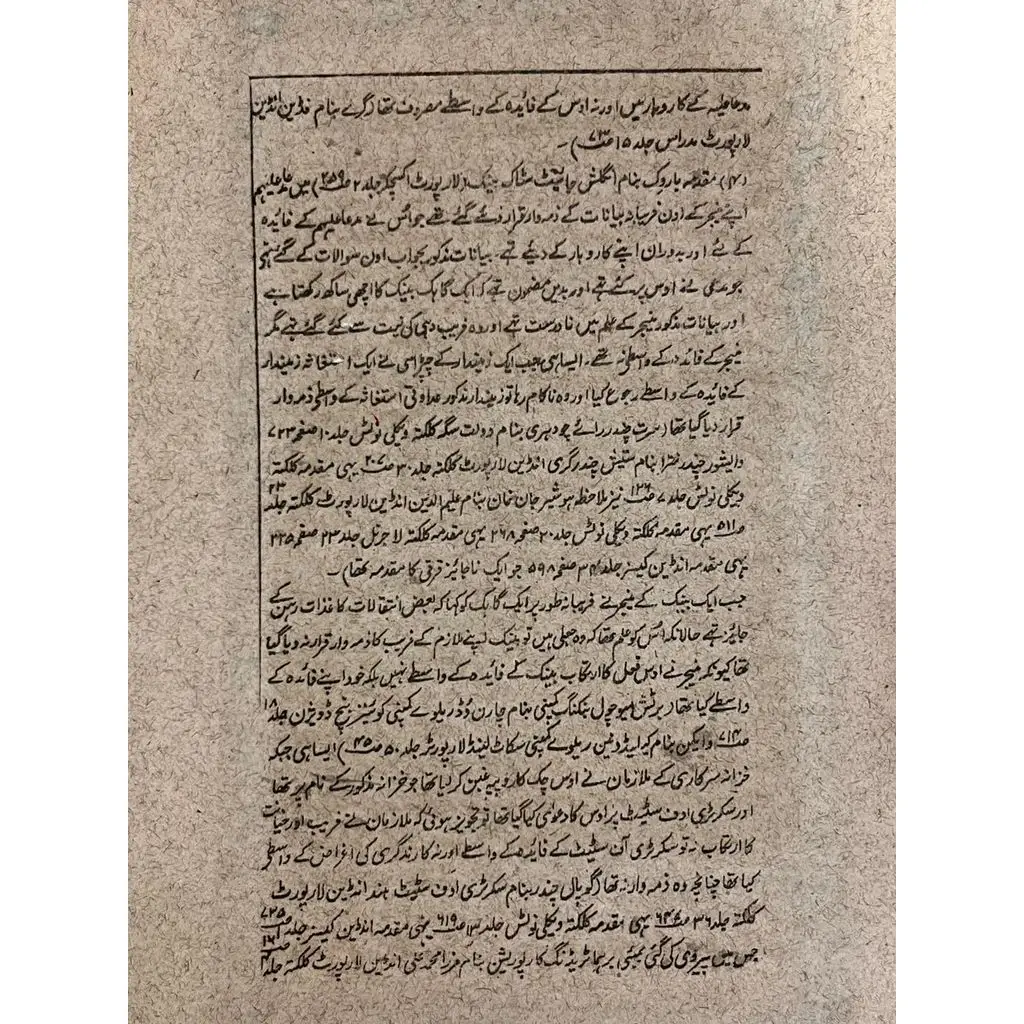 مدعاعلیہ کے کاروبار میں اور نہ اوس کے فائدہ کے واسطے مصروف تھا (گرے بنام انڈین
لا رپورٹ مدراس جلد ۱۵ صـ ۷۳) ۔
(۴) مقدمہ باروک بنام انگلش جائینٹ سٹاک بینک (لا رپورٹ اکسچکر جلد ۲ صـ ۲۵۹) میں مدعاعلیہم
اپنے منیجر کے اون فریبانہ بیانات کے ذمہ وار قرار دئے گئے تھے جو اُس نے مدعاعلیہم کے فائدہ
کے لئے اور بدوران اپنے کاروبار کے دیئے تھے۔ بیانات مذکور بجواب اون سوالات کے کئے گئے تھے
جو مدعی نے اوس پر کئے تھے اور بدیں مضمون تھے کہ ایک گاہک بینک کا اچھی ساکھ رکھتا ہے
اور بیانات مذکور منیجر کے علم میں نادرست تھے اور وہ فریب دہی کی نیت سے کئے گئے تھے مگر
منیجر کے فائدہ کے واسطے نہ تھے۔ ایسا ہی جب ایک زمیندار کے چپڑاسی نے ایک استغاثہ زمیندار
کے فائدہ کے واسطے رجوع کیا اور وہ ناکام رہا تو زمیندار مذکور عداوتی استغاثہ کے واسطے ذمہ وار
قرار دیا گیا تھا (سرت چندر رائے چودہری بنام دولت سنگہ کلکتہ ویکلی نوٹس جلد ۱۰ صفحہ ۷۲۳
والیشور چیندر مترا بنام ستیش چندر گری انڈین لا رپورٹ کلکتہ جلد ۳۰ صـ ۲۰۷ یہی مقدمہ کلکتہ
ویکلی نوٹس جلد ۷ صـ ۱۲۶ نیز ملاحظہ ہو شیر جان خان بنام علیم الدین انڈین لا رپورٹ کلکتہ جلد ۴۳
صـ ۵۱۱ یہی مقدمہ کلکتہ ویکلی نوٹس جلد ۲۰ صفحہ ۲۶۸ یہی مقدمہ کلکتہ لا جرنل جلد ۲۳ صفحہ ۲۲۵
یہی مقدمہ انڈین کیسز جلد ۳۴ صفحہ ۵۹۸ جو ایک ناجائیز قرقی کا مقدمہ تھا) ۔
جب ایک بینک کے منیجر نے فریبانہ طور پر ایک گاہک کو کہا کہ بعض انتقالات کاغذات رہن کے
جائیز تھے حالانکہ اُس کو علم تھا کہ وہ جعلی ہیں تو بینک اپنے ملازم کے فریب کا ذمہ وار قرار نہ دیا گیا
تھا کیونکہ منیجر نے اوس فعل کا ارتکاب بینک کے فائدہ کے واسطے نہیں بلکہ خود اپنے فائدہ کے
واسطے کیا تھا (برٹش میوچول بنکنگ کمپنی بنام چارن وُڈ ریلوے کمپنی کوئینز بنچ ڈویژن جلد ۱۸
صـ ۷۱۴ بنام ریلوے کمپنی سکاٹ لینڈ لا رپورٹر جلد ۵۰ صـ ۴۵) ایسا ہی جبکہ
خزانہ سرکاری کے ملازمان نے اوس چک کا روپیہ غبن کر لیا تھا جو خزانہ مذکور کے نام پر تھا
اور سکرٹری اوف سٹیٹ پر اوس کا دعوٰی کیا گیا تھا تو تجویز ہوئی کہ ملازمان نے فریب اور خیانت
کا ارتکاب نہ تو سکرٹری آف سٹیٹ کے فائدہ کے واسطے اور نہ کارندگری کی اغراض کے واسطے
کیا تھا چنانچہ وہ ذمہ وار نہ تھا (گوپال چندر بنام سکرٹری اوف سٹیٹ ہند انڈین لا رپورٹ
کلکتہ جلد ۳۶ صـ ۶۴۷ یہی مقدمہ کلکتہ ویکلی نوٹس جلد ۱۳ صـ ۶۱۹ یہی مقدمہ انڈین کیسز جلد
جس میں پیروی کی گئی بمبئی برہما ٹریڈنگ کارپوریشن بنام مرزا محمد علی انڈین لا رپورٹ کلکتہ جلد ۴